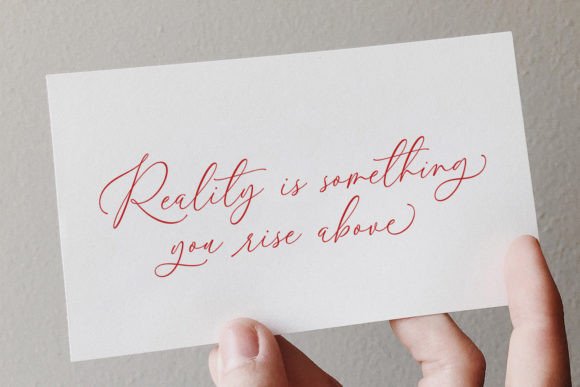 Reality is something
you rise above